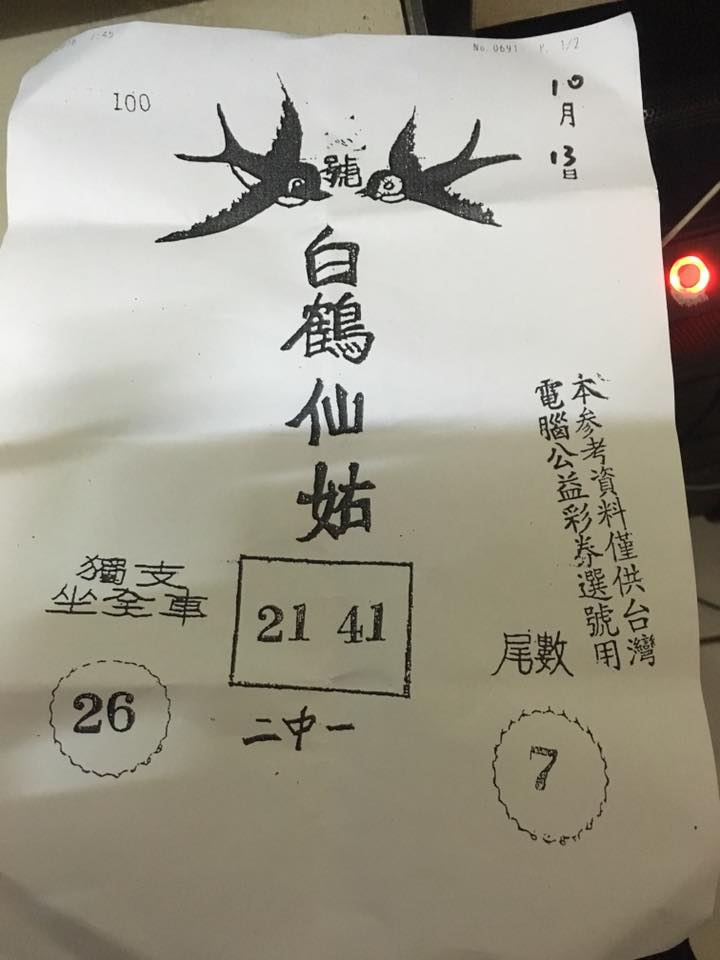 No. 0691 P. 1/2
100
10月13日
號
白鶴仙姑
本參考資料僅供台灣
電腦公益彩券選號用
獨支
坐全車
26
21 41
二中一
尾數
7